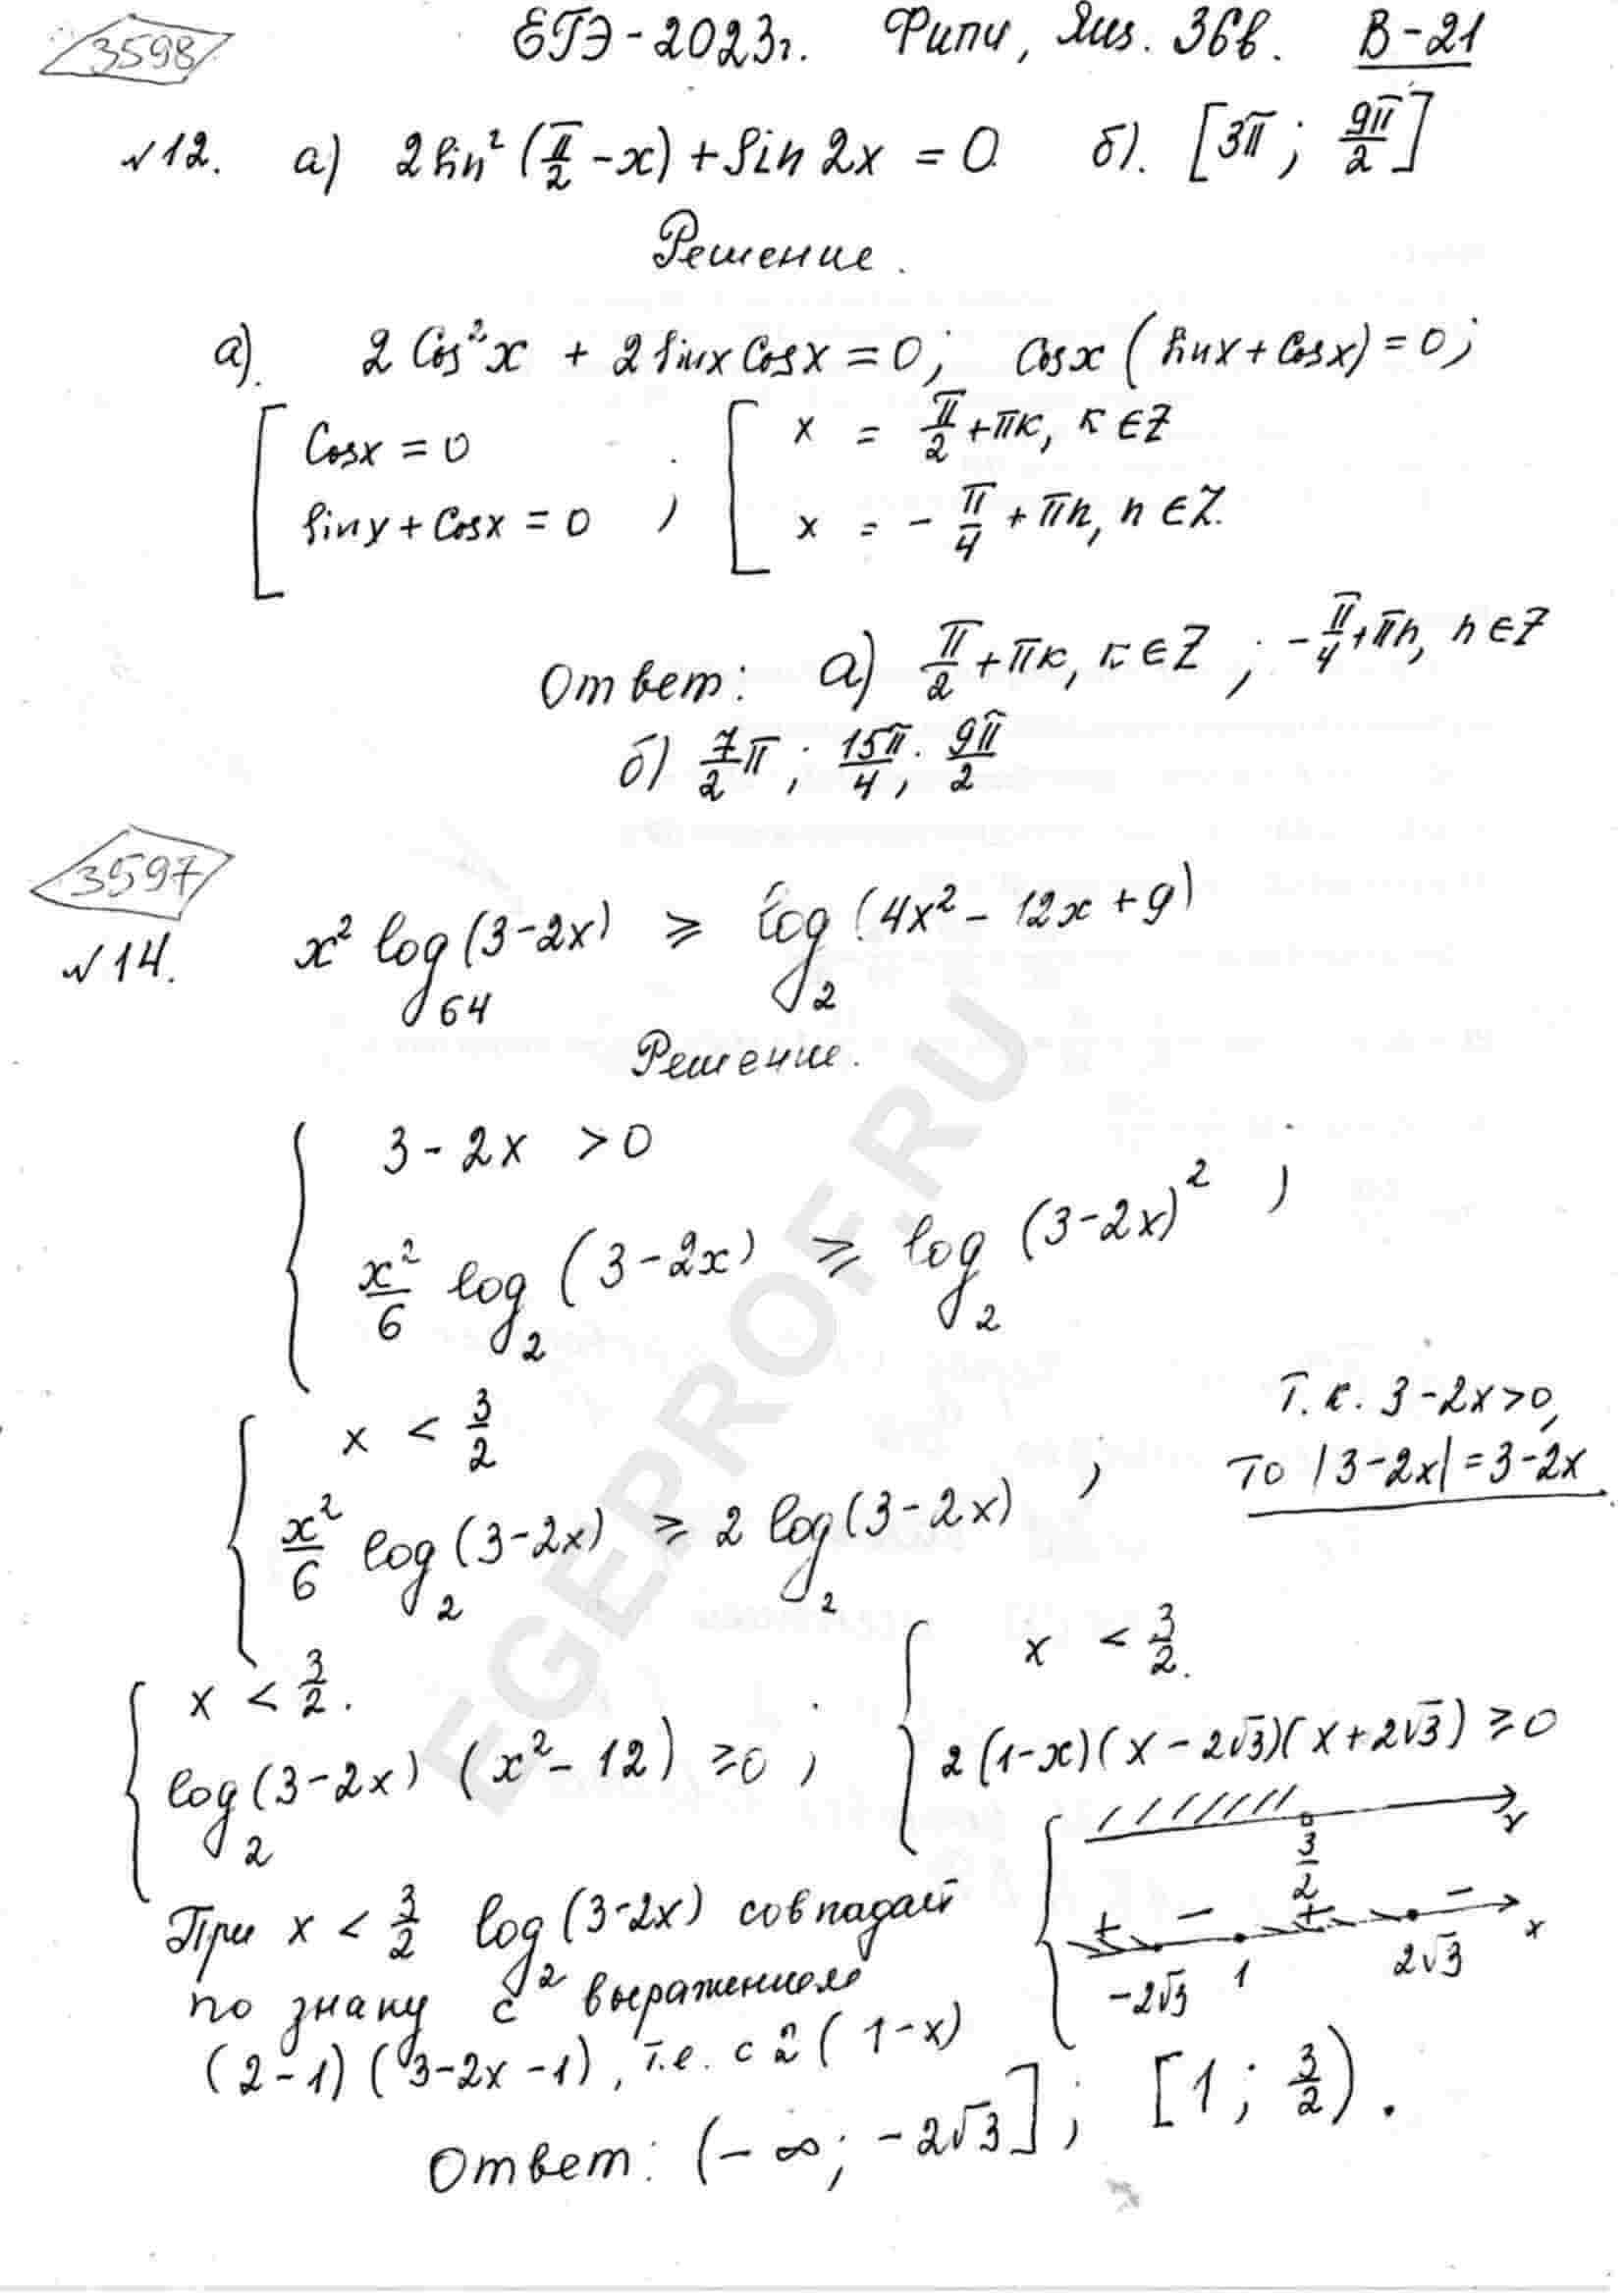 3598
ЕГЭ-2023г. Фипи, Ящ. 36в. В-21
№12. а) 2sin²(π/2 - x) + sin 2x = 0. б). [3π; 9π/2]
Решение.
а). 2cos²x + 2sinx cosx = 0; cosx (sinx + cosx) = 0;
[ cosx = 0 ; [ x = π/2 + πк, к ∈ Z
sinx + cosx = 0 x = -π/4 + πn, n ∈ Z.
Ответ: а) π/2 + πк, к ∈ Z; -π/4 + πn, n ∈ Z
б) 7/2 π; 15π/4; 9π/2
3597
№14. x² log₆₄(3-2x) ≥ log₂(4x² - 12x + 9)
Решение.
{ 3 - 2x > 0
x²/6 log₂(3-2x) ≥ log₂(3-2x)² ;
{ x < 3/2 Т.к. 3-2x>0,
x²/6 log₂(3-2x) ≥ 2 log₂(3-2x) ; то |3-2x| = 3-2x
{ x < 3/2. { x < 3/2.
log₂(3-2x) (x² - 12) ≥ 0 ; 2(1-x)(x-2√3)(x+2√3) ≥ 0
3/2 x
+ - + - x
-2√3 1 2√3
При x < 3/2 log₂(3-2x) совпадает
по знаку с выражением
(2-1)(3-2x-1), т.е. с 2(1-x)
Ответ: (-∞; -2√3]; [1; 3/2).
EGEPROF.RU